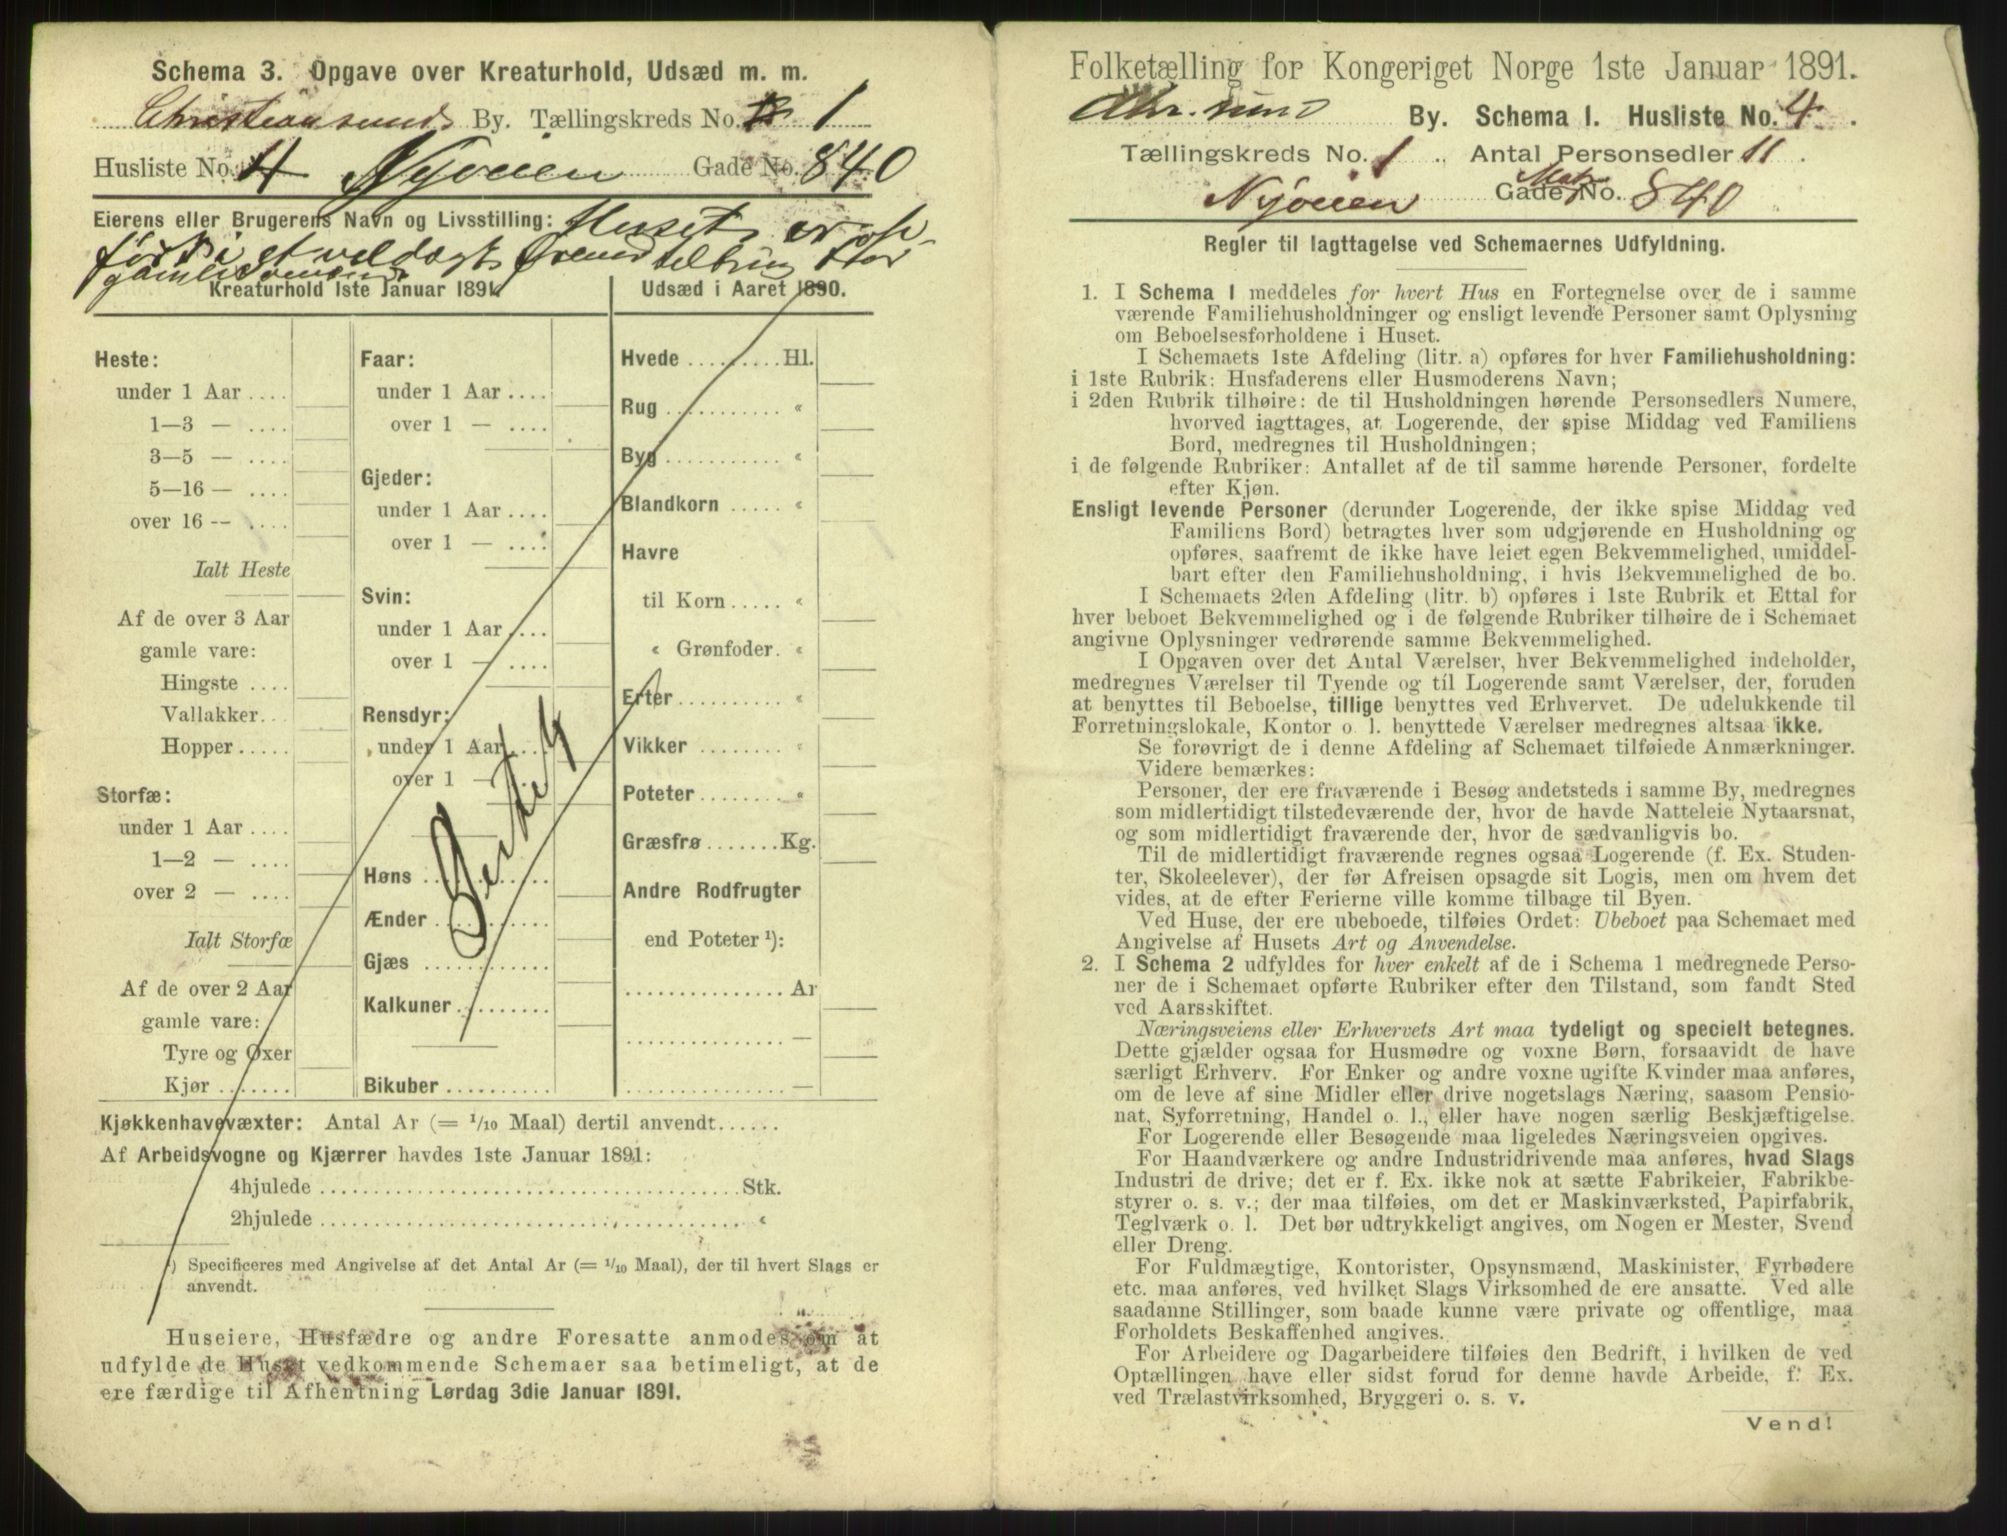 Schema 3. Opgave over Kreaturhold, Udsæd m. m.
Christiansunds By. Tællingskreds No. 1
Husliste No. 4 Nyveien Gade No. 840
Eierens eller Brugerens Navn og Livsstilling: Huset er op-
ført i et
gamle
Kreaturhold 1ste Januar 1891.
Udsæd i Aaret 1890.
Heste:
under 1 Aar ....
1—3 — ....
3—5 — ....
5—16 — ....
over 16 -- ....
Ialt Heste
Af de over 3 Aar
gamle vare:
Hingste ....
Vallakker...
Hopper.....
Storfæ:
under 1 Aar ....
1—2 — ....
over 2 — ....
Ialt Storfæ
Af de over 2 Aar
gamle vare:
Tyre og Oxer
Kjør .......
Faar:
under 1 Aar ....
over 1 — ....
Gjeder:
under 1 Aar ....
over 1 — ....
Svin:
under 1 Aar ....
over 1 — ....
Rensdyr:
under 1 Aar ....
over 1 — ....
Høns ...........
Ænder ..........
Gjæs ...........
Kalkuner .........
Bikuber ..........
Hvede ......... Hl.
Rug ........... «
Byg ........... «
Blandkorn ..... «
Havre
til Korn..... «
« Grønfoder. «
Erter.......... «
Vikker ........ «
Poteter ........ «
Græsfrø ....... Kg.
Andre Rodfrugter
end Poteter ¹):
............... Ar
............... —
............... —
Kjøkkenhavevæxter: Antal Ar (= 1/10 Maal) dertil anvendt......
Af Arbeidsvogne og Kjærrer havdes 1ste Januar 1891:
4hjulede ........................................ Stk.
2hjulede ........................................ «
¹) Specificeres med Angivelse af det Antal Ar (= 1/10 Maal), der til hvert Slags er
anvendt.
Huseiere, Husfædre og andre Foresatte anmodes om at
udfylde de Huset vedkommende Schemaer saa betimeligt, at de
ere færdige til Afhentning Lørdag 3die Januar 1891.
Folketælling for Kongeriget Norge 1ste Januar 1891.
Chr.sund By. Schema I. Husliste No. 4.
Tællingskreds No. 1., Antal Personsedler 11.
Nyveien Gade Matr No. 840
Regler til Iagttagelse ved Schemaernes Udfyldning.
1. I Schema 1 meddeles for hvert Hus en Fortegnelse over de i samme
værende Familiehusholdninger og ensligt levende Personer samt Oplysning
om Beboelsesforholdene i Huset.
I Schemaets 1ste Afdeling (litr. a) opføres for hver Familiehusholdning:
i 1ste Rubrik: Husfaderens eller Husmoderens Navn;
i 2den Rubrik tilhøire: de til Husholdningen hørende Personsedlers Numere,
hvorved iagttages, at Logerende, der spise Middag ved Familiens
Bord, medregnes til Husholdningen;
i de følgende Rubriker: Antallet af de til samme hørende Personer, fordelte
efter Kjøn.
Ensligt levende Personer (derunder Logerende, der ikke spise Middag ved
Familiens Bord) betragtes hver som udgjørende en Husholdning og
opføres, saafremt de ikke have leiet egen Bekvemmelighed, umiddel-
bart efter den Familiehusholdning, i hvis Bekvemmelighed de bo.
I Schemaets 2den Afdeling (litr. b) opføres i 1ste Rubrik et Ettal for
hver beboet Bekvemmelighed og i de følgende Rubriker tilhøire de i Schemaet
angivne Oplysninger vedrørende samme Bekvemmelighed.
I Opgaven over det Antal Værelser, hver Bekvemmelighed indeholder,
medregnes Værelser til Tyende og til Logerende samt Værelser, der, foruden
at benyttes til Beboelse, tillige benyttes ved Erhvervet. De udelukkende til
Forretningslokale, Kontor o. l. benyttede Værelser medregnes altsaa ikke.
Se forøvrigt de i denne Afdeling af Schemaet tilføiede Anmærkninger.
Videre bemærkes:
Personer, der ere fraværende i Besøg andetsteds i samme By, medregnes
som midlertidigt tilstedeværende der, hvor de havde Natteleie Nytaarsnat,
og som midlertidigt fraværende der, hvor de sædvanligvis bo.
Til de midlertidigt fraværende regnes ogsaa Logerende (f. Ex. Studen-
ter, Skoleelever), der før Afreisen opsagde sit Logis, men om hvem det
vides, at de efter Ferierne ville komme tilbage til Byen.
Ved Huse, der ere ubeboede, tilføies Ordet: Ubeboet paa Schemaet med
Angivelse af Husets Art og Anvendelse.
2. I Schema 2 udfyldes for hver enkelt af de i Schema 1 medregnede Perso-
ner de i Schemaet opførte Rubriker efter den Tilstand, som fandt Sted
ved Aarsskiftet.
Næringsveiens eller Erhvervets Art maa tydeligt og specielt betegnes.
Dette gjælder ogsaa for Husmødre og voxne Børn, forsaavidt de have
særligt Erhverv. For Enker og andre voxne ugifte Kvinder maa anføres,
om de leve af sine Midler eller drive nogetslags Næring, saasom Pensio-
nat, Syforretning, Handel o. l., eller have nogen særlig Beskjæftigelse.
For Logerende eller Besøgende maa ligeledes Næringsveien opgives.
For Haandværkere og andre Industridrivende maa anføres, hvad Slags
Industri de drive; det er f. Ex. ikke nok at sætte Fabrikeier, Fabrikbe-
styrer o. s. v.; der maa tilføies, om det er Maskinværksted, Papirfabrik,
Teglværk o. l. Det bør udtrykkeligt angives, om Nogen er Mester, Svend
eller Dreng.
For Fuldmægtige, Kontorister, Opsynsmænd, Maskinister, Fyrbødere
etc. maa anføres, ved hvilket Slags Virksomhed de ere ansatte. Ved alle
saadanne Stillinger, som baade kunne være private og offentlige, maa
Forholdets Beskaffenhed angives.
For Arbeidere og Dagarbeidere tilføies den Bedrift, i hvilken de ved
Optællingen have eller sidst forud for denne havde Arbeide, f. Ex.
ved Trælastvirksomhed, Bryggeri o. s. v.
Vend!